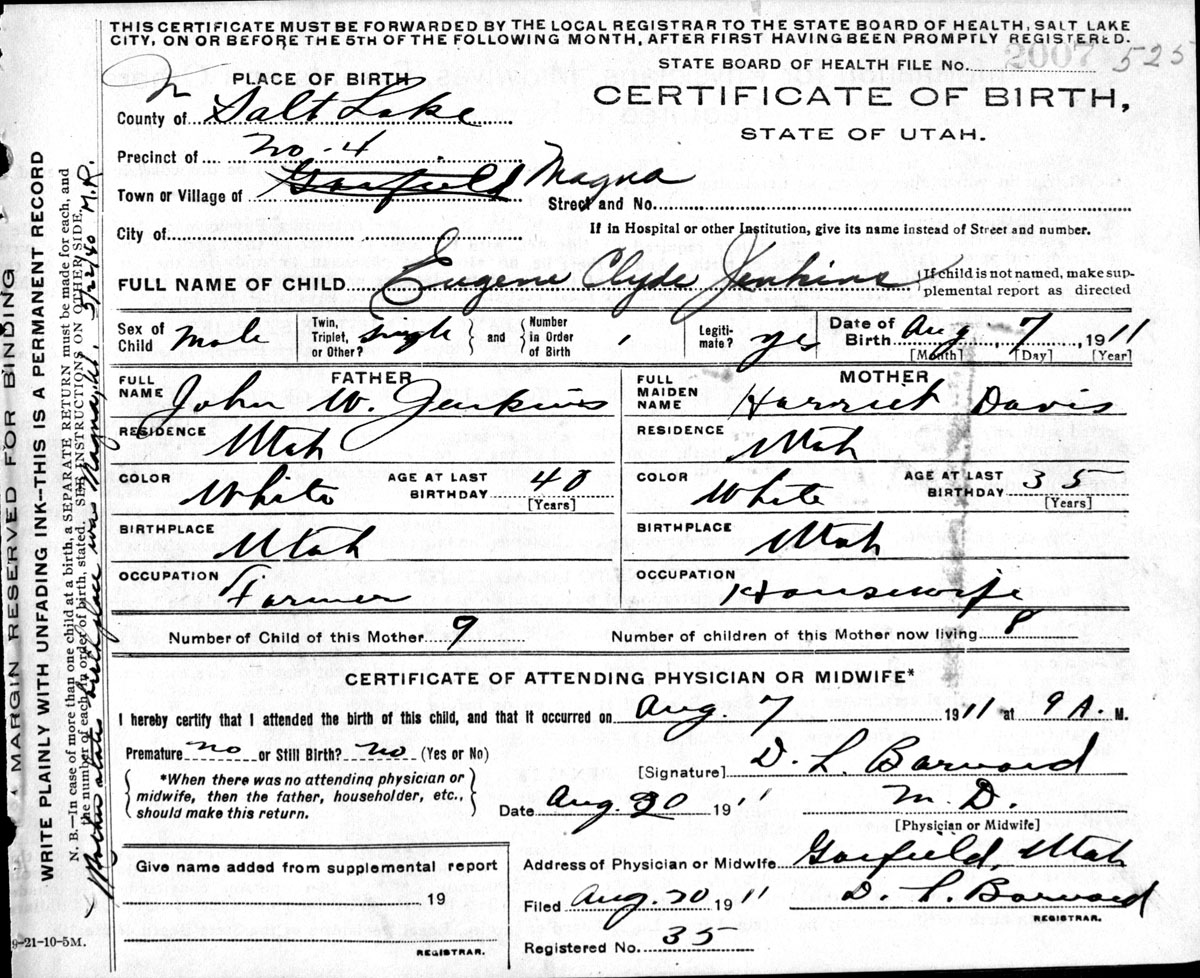 THIS CERTIFICATE MUST BE FORWARDED BY THE LOCAL REGISTRAR TO THE STATE BOARD OF HEALTH, SALT LAKE
CITY, ON OR BEFORE THE 5TH OF THE FOLLOWING MONTH, AFTER FIRST HAVING BEEN PROMPTLY REGISTERED.
STATE BOARD OF HEALTH FILE No. 2007 525
PLACE OF BIRTH
CERTIFICATE OF BIRTH,
County of Salt Lake
STATE OF UTAH.
Precinct of No. 4
Town or Village of Garfield Magna Street and No.
If in Hospital or other Institution, give its name instead of Street and number.
City of
FULL NAME OF CHILD Eugene Clyde Jenkins {If child is not named, make sup-
plemental report as directed
Sex of Child Male Twin, Triplet, or Other? single } and { Number in Order of Birth 1 Legiti-mate? yes Date of Birth Aug 7, 1911
[Month] [Day] [Year]
FATHER MOTHER
FULL NAME John W. Jenkins FULL MAIDEN NAME Harriet Davis
RESIDENCE Utah RESIDENCE Utah
COLOR White AGE AT LAST BIRTHDAY 40 [Years] COLOR White AGE AT LAST BIRTHDAY 35 [Years]
BIRTHPLACE Utah BIRTHPLACE Utah
OCCUPATION Farmer OCCUPATION Housewife
Number of Child of this Mother 9 Number of children of this Mother now living 8
CERTIFICATE OF ATTENDING PHYSICIAN OR MIDWIFE*
I hereby certify that I attended the birth of this child, and that it occurred on Aug. 7 1911 at 9 A. M.
Premature no or Still Birth? no (Yes or No)
{ *When there was no attending physician or
midwife, then the father, householder, etc.,
should make this return. }
[Signature] D. L. Barnard
Date Aug. 20 1911 M. D.
[Physician or Midwife]
Give name added from supplemental report
19
REGISTRAR.
Address of Physician or Midwife Garfield, Utah
Filed Aug. 20 1911 D. L. Barnard
REGISTRAR.
Registered No. 35
9-21-10-5M.
MARGIN RESERVED FOR BINDING
WRITE PLAINLY WITH UNFADING INK--THIS IS A PERMANENT RECORD
N. B.—In case of more than one child at a birth, a SEPARATE RETURN must be made for each, and
the number of each, in order of birth, stated. SEE INSTRUCTIONS ON OTHER SIDE.
states birthplace was Magna 5/22/40 M.P.